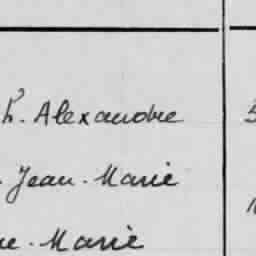 h. Alexandre
Jean-Marie
ne-Marie